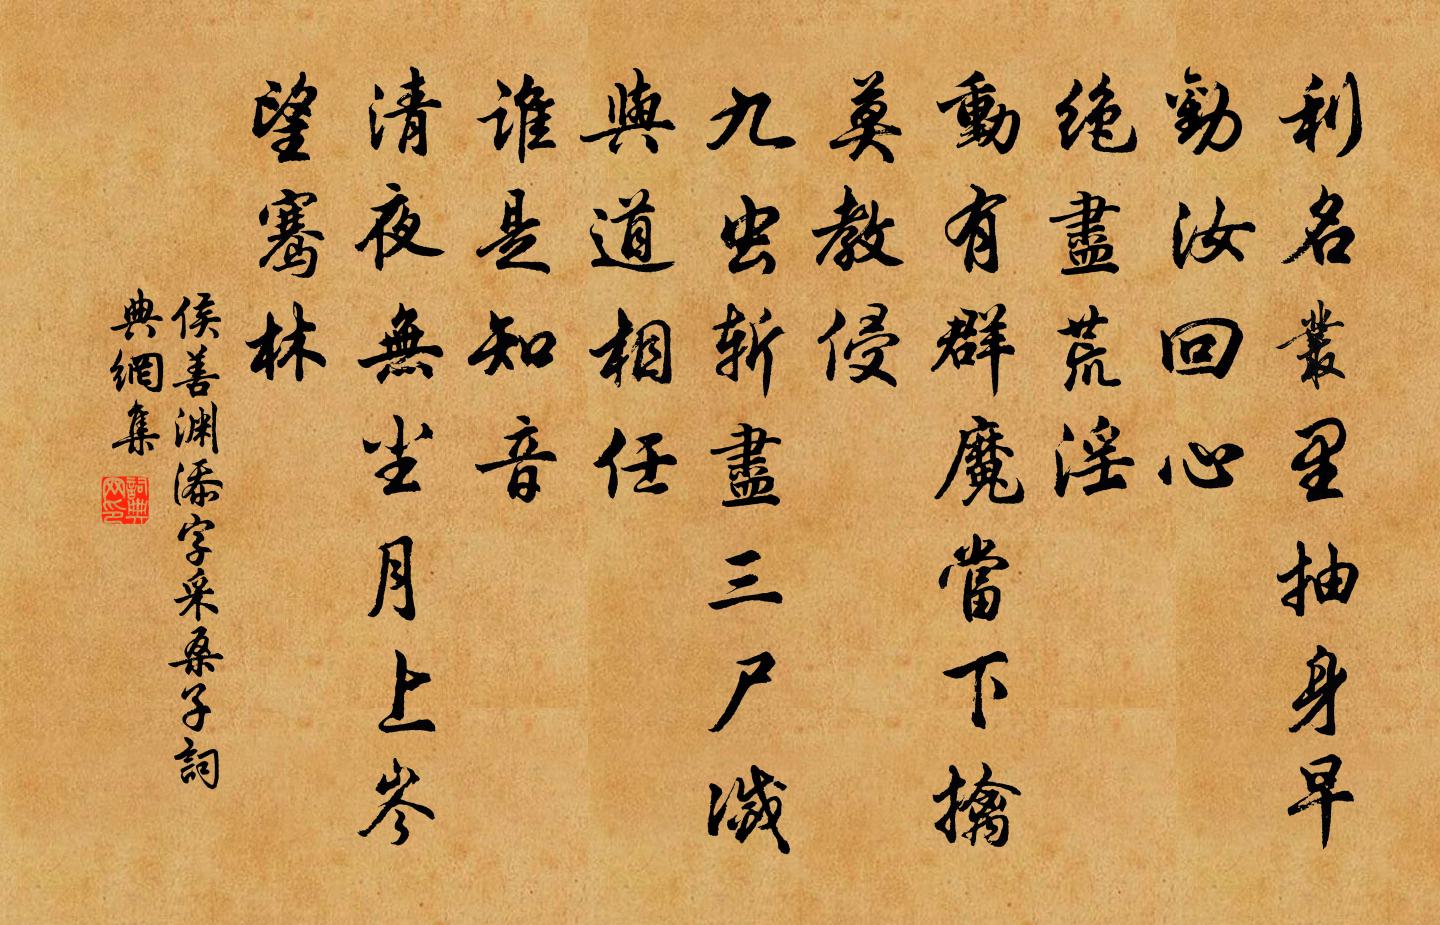 利名叢里抽身早
勸汝回心
絶盡荒淫
動有群魔當下擒
莫教侵
九虫斬盡三尸滅
與道相任
誰是知音
清夜無尘月上岑
望騫林
侯善渊添字采桑子詞
典網集
詞典
网印